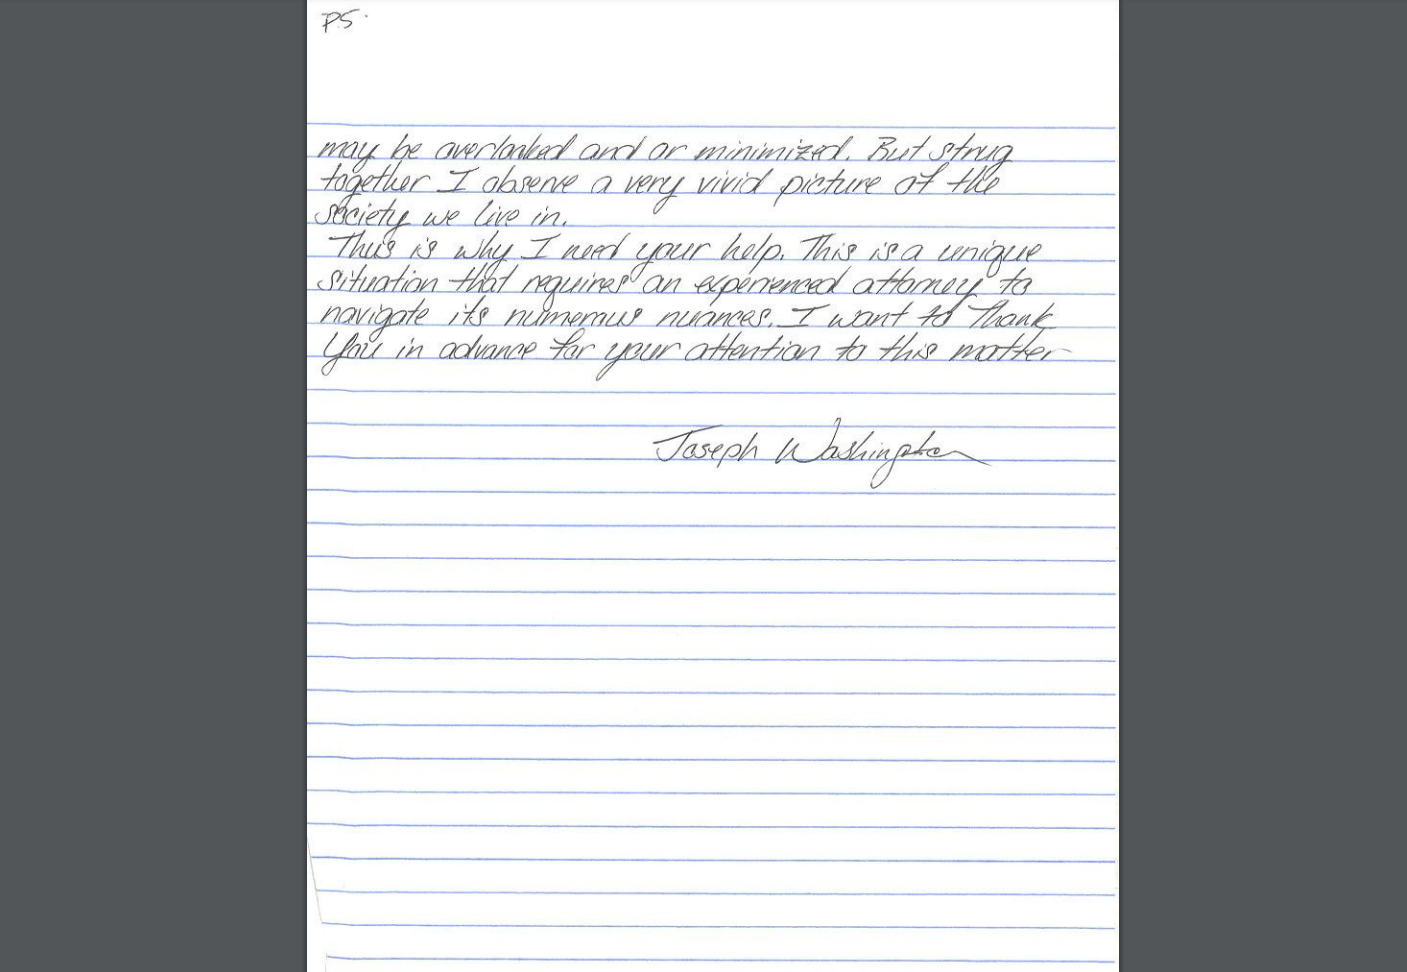 P.5.
may be overlooked and or minimized. But strug
together I observe a very vivid picture of the
society we live in.
Thus is why I need your help. This is a unique
situation that requires an experienced attorney to
navigate its numerous nuances. I want to Thank
You in advance for your attention to this matter
Joseph Washington